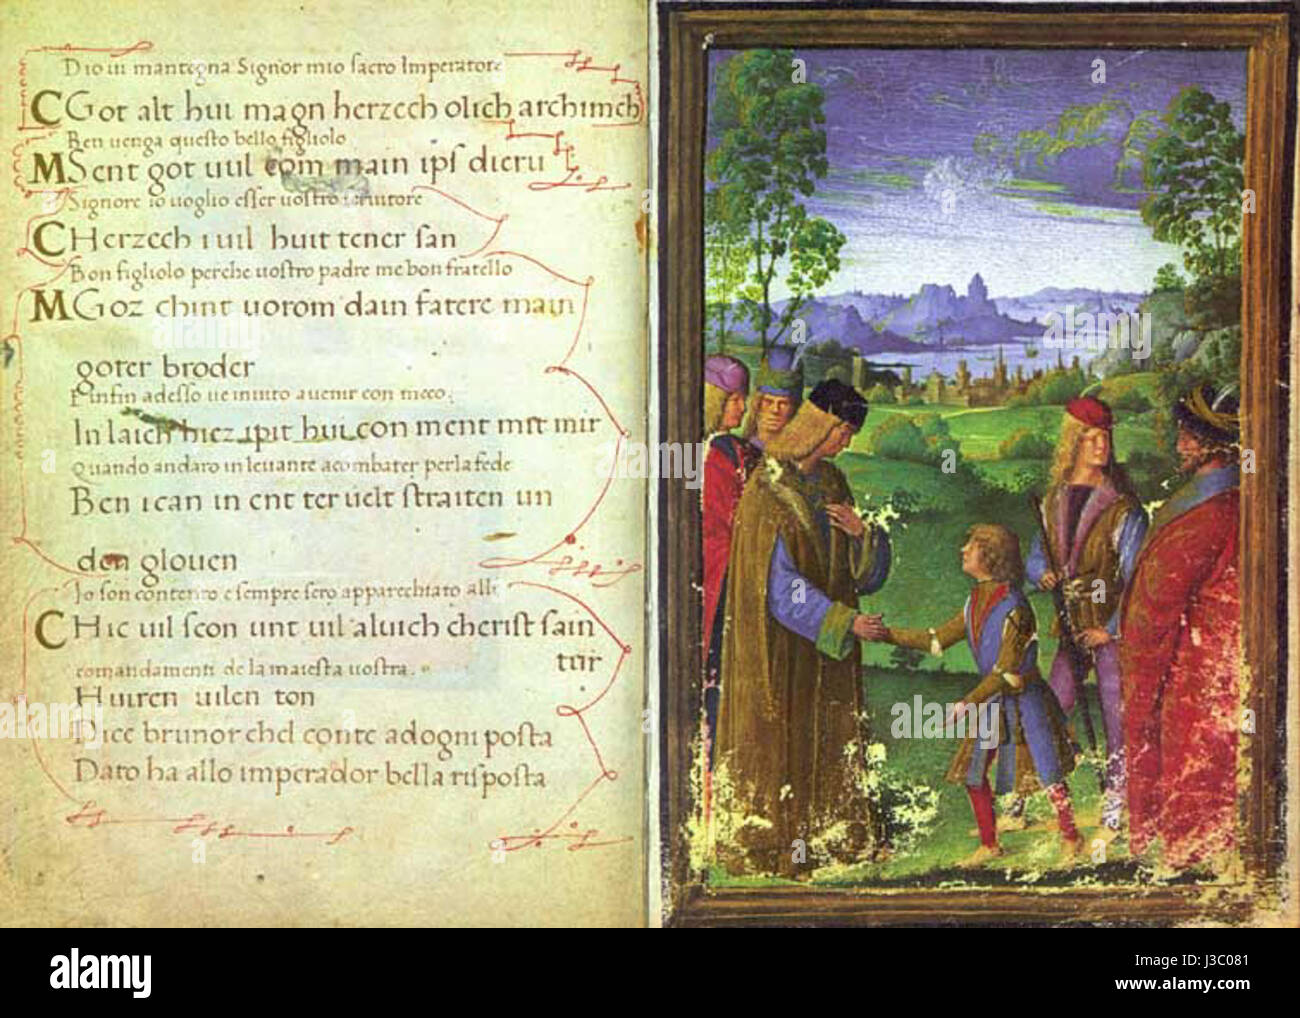 Dio ui mantegna Signor mio sacro Imperatore
C Got alt hui magn herzech olich archinnch
Ben uenga questo bello figliolo
M Sent got uuil com main ips dieru
Signore io uoglio esser uostro seruitore
C Herzech i uil huit tener san
Bon figliolo perche uostro padre me bon fratello
M Goz chint uorom dain fatere main
goter broder
E infin adesso ue inuito auenir con meco.
In laich hiez ipit hui con ment mit mir
Quando andaro in leuante acombater per la fede
Ben i can in ent ter uelt straiten un
den glouen
Io son contento e sempre sero apparechiato alli
C Hic uil scon unt uil aluich cherist sain
tur
comandamenti de la maiesta uostra.
Huiren uilen ton
Dice brunor chel conte adogni posta
Dato ha allo imperador bella risposta
alamy
Image ID: J3C081
www.alamy.com